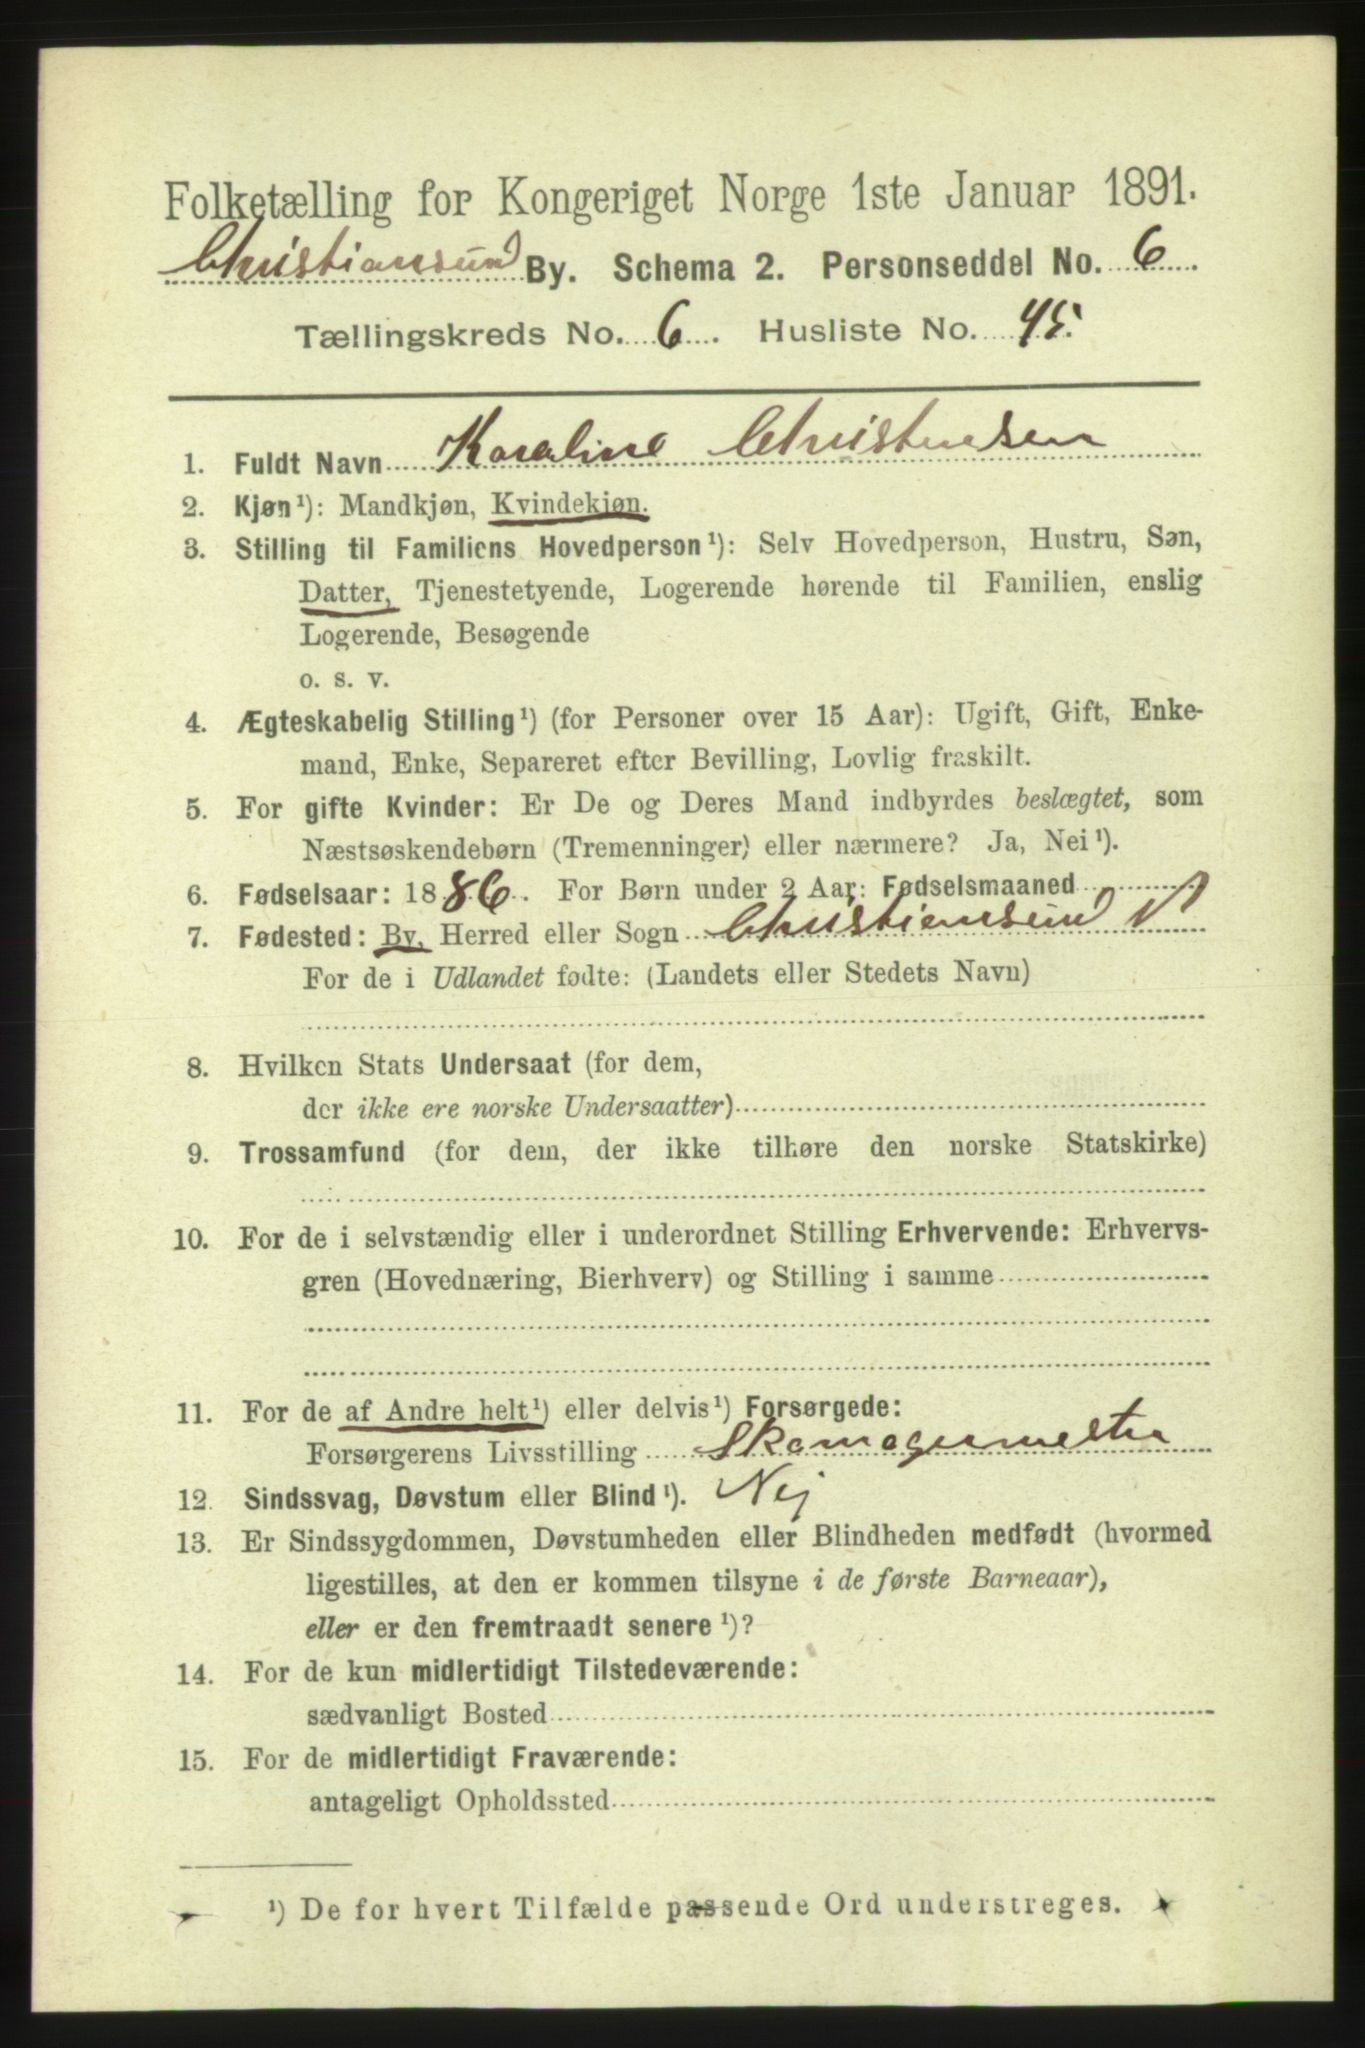 Folketælling for Kongeriget Norge 1ste Januar 1891.
Christiansund By. Schema 2. Personseddel No. 6
Tællingskreds No. 6. Husliste No. 45.
1. Fuldt Navn Karaline Christensen
2. Kjøn¹): Mandkjøn, Kvindekjøn.
3. Stilling til Familiens Hovedperson¹): Selv Hovedperson, Hustru, Søn,
Datter, Tjenestetyende, Logerende hørende til Familien, enslig
Logerende, Besøgende
o. s. v.
4. Ægteskabelig Stilling¹) (for Personer over 15 Aar): Ugift, Gift, Enke-
mand, Enke, Separeret efter Bevilling, Lovlig fraskilt.
5. For gifte Kvinder: Er De og Deres Mand indbyrdes beslægtet, som
Næstsøskendebørn (Tremenninger) eller nærmere? Ja, Nei¹).
6. Fødselsaar: 1886. For Børn under 2 Aar: Fødselsmaaned
7. Fødested: By, Herred eller Sogn Christiansund
For de i Udlandet fødte: (Landets eller Stedets Navn)
8. Hvilken Stats Undersaat (for dem,
der ikke ere norske Undersaatter)
9. Trossamfund (for dem, der ikke tilhøre den norske Statskirke)
10. For de i selvstændig eller i underordnet Stilling Erhvervende: Erhvervs-
gren (Hovednæring, Bierhverv) og Stilling i samme
11. For de af Andre helt¹) eller delvis¹) Forsørgede:
Forsørgerens Livsstilling Skomagermester
12. Sindssvag, Døvstum eller Blind¹). Nej
13. Er Sindssygdommen, Døvstumheden eller Blindheden medfødt (hvormed
ligestilles, at den er kommen tilsyne i de første Barneaar),
eller er den fremtraadt senere¹)?
14. For de kun midlertidigt Tilstedeværende:
sædvanligt Bosted
15. For de midlertidigt Fraværende:
antageligt Opholdssted
¹) De for hvert Tilfælde passende Ord understreges.